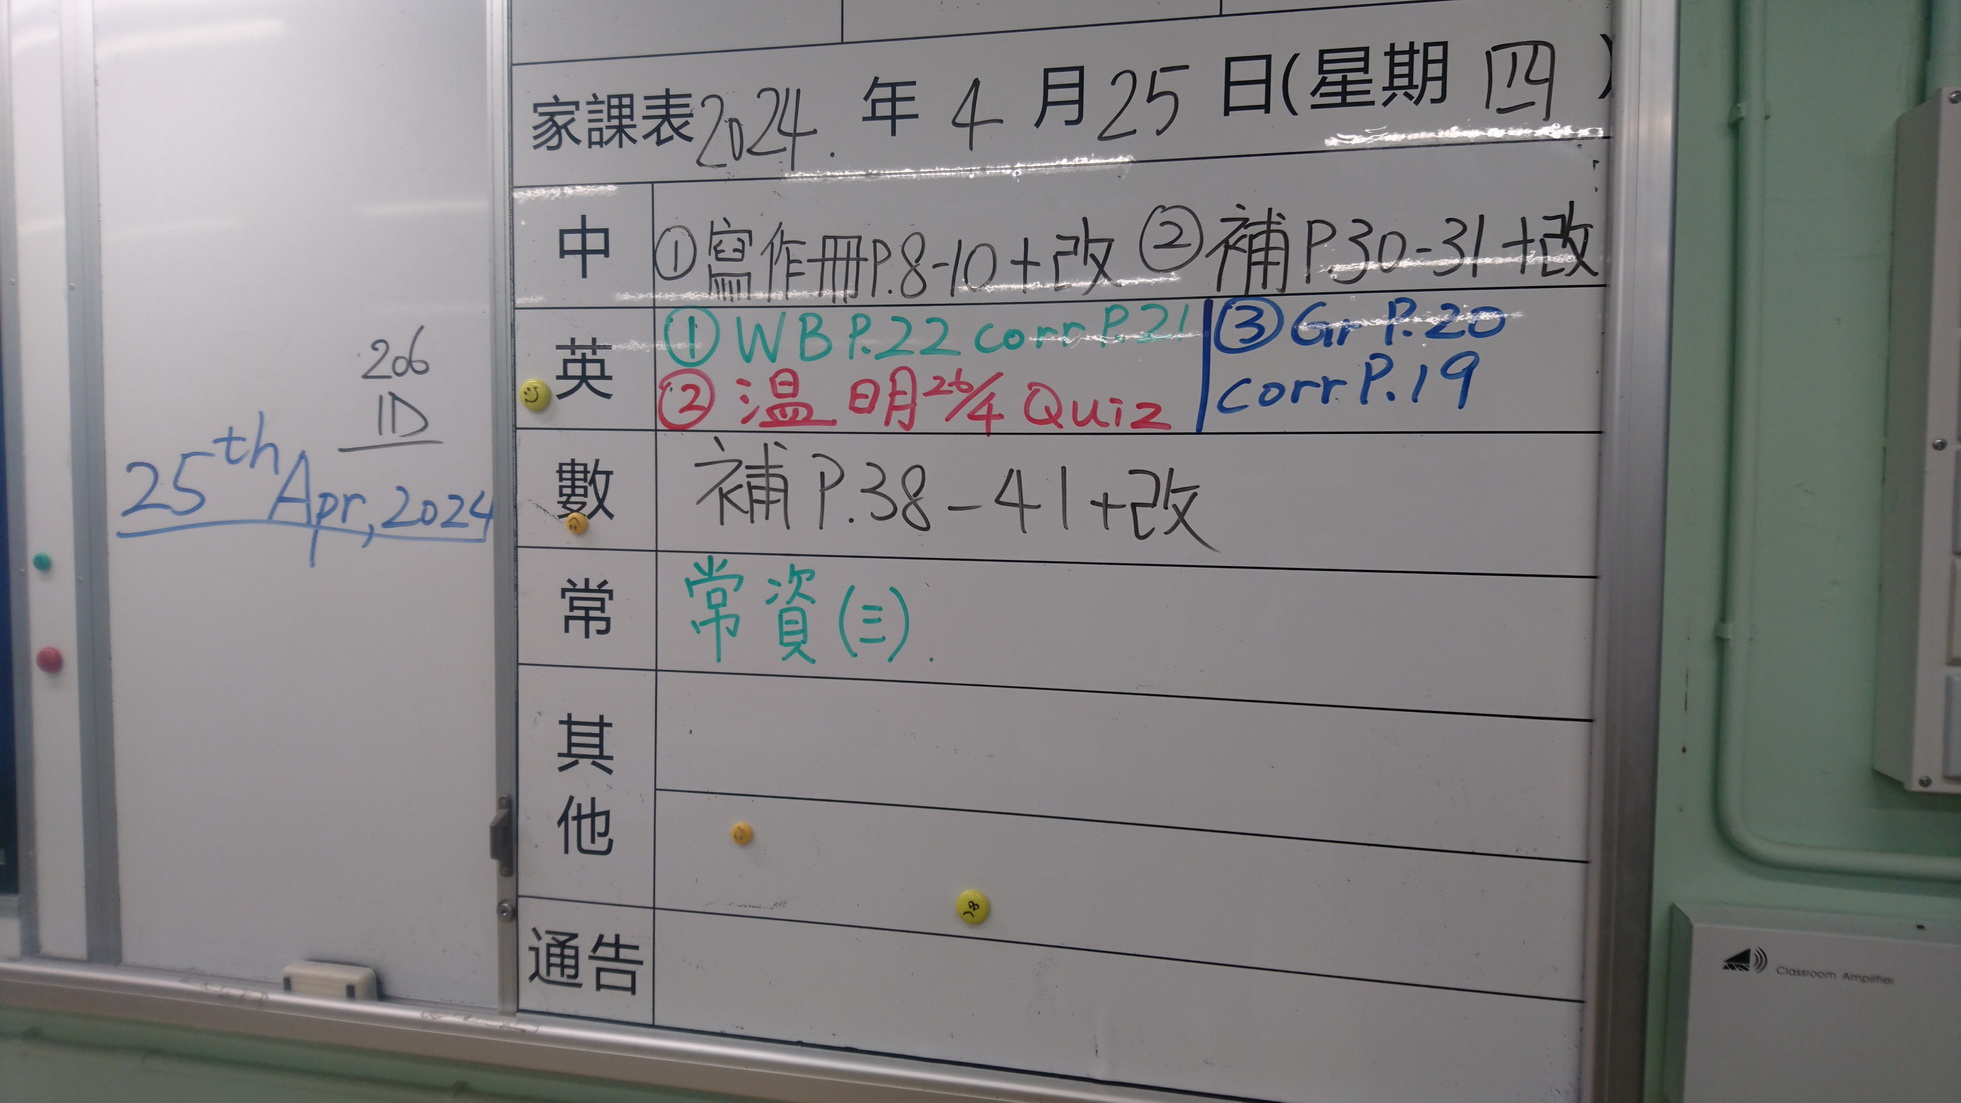 206
1D
25th Apr, 2024
家課表2024.年4月25日(星期四)
中
①寫作冊P.8-10+改 ②補P.30-31+改
英
①WB P.22 corr P.21
②温 明26/4 Quiz
③Gr P.20
corr P.19
數
補P.38-41+改
常
常資(三).
其他
通告
Classroom Amplifier